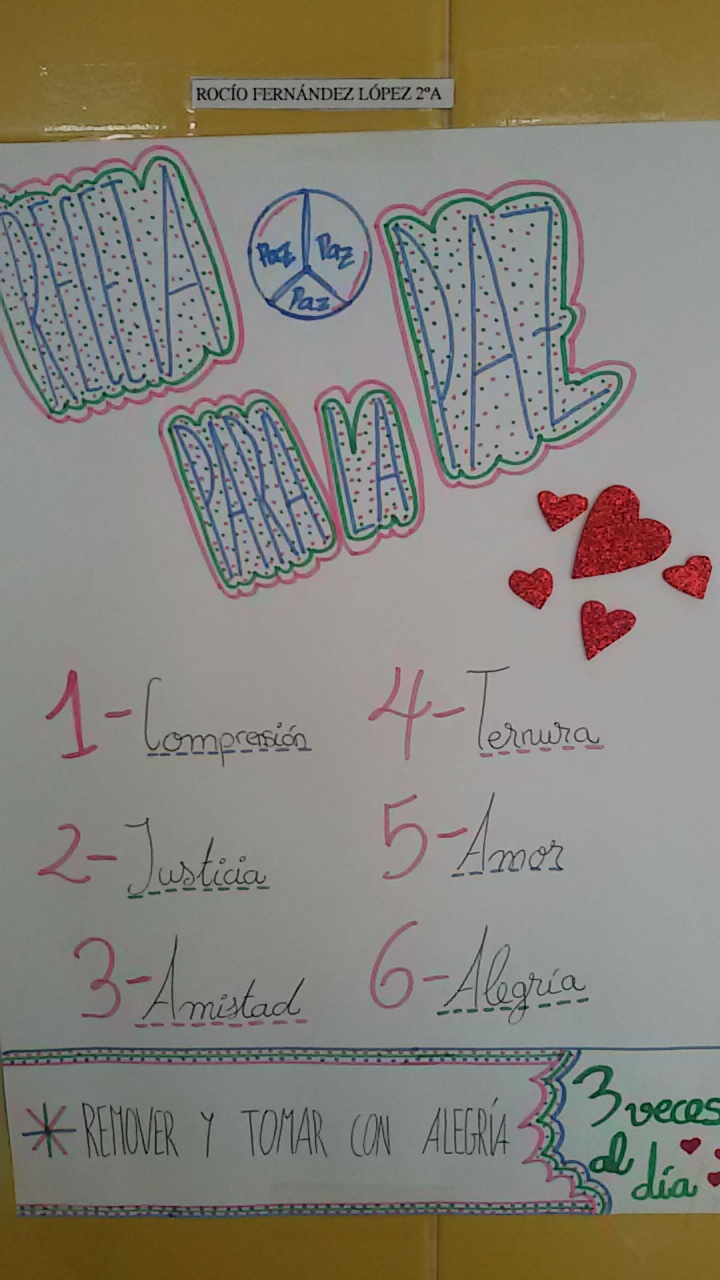 ROCÍO FERNÁNDEZ LÓPEZ 2ºA
RECETA
Paz Paz
Paz
PAZ
PARA LA
1-Comprensión
2-Justicia
3-Amistad
4-Ternura
5-Amor
6-Alegría
* REMOVER Y TOMAR CON ALEGRÍA
3 veces
al día